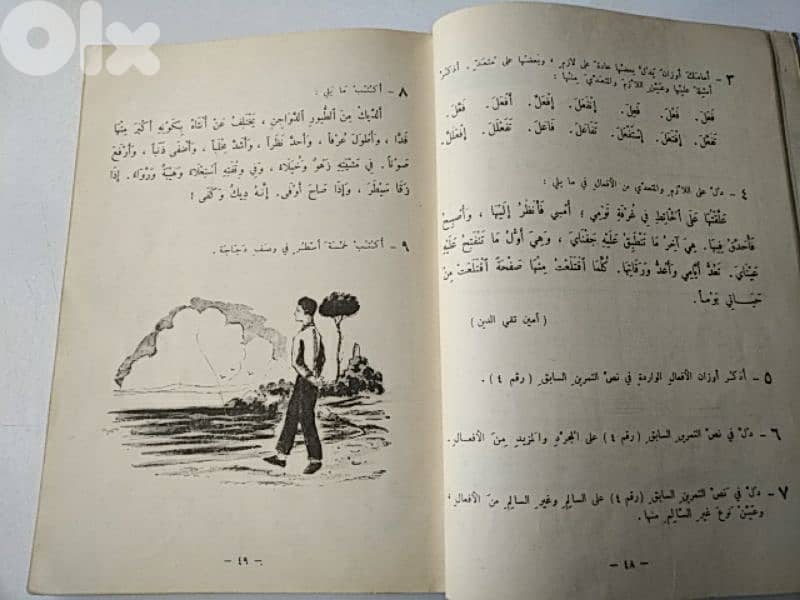 OLX
٣ - أمامك أوزان يدل بعضها عادة على لازم ، وبعضها على متعد. أذكر
أمثلة عليها وعيّن اللازم والمتعدي منها:
فَعَلَ. فَعُلَ. فَعِلَ. إِنْفَعَلَ. أَفْعَلَ. فَعَّلَ.
تَفَعَّلَ. إِفْتَعَلَ. إِسْتَفْعَلَ. تَفَاعَلَ. فَاعَلَ. تَفَعْلَلَ. إِفْعَلَلَّ.
٤ - دلّ على اللازم والمتعدي من الأفعال في ما يلي :
عَلَّقْتُهَا عَلَى الْحَائِطِ فِي غُرْفَةِ نَوْمِي ؛ أُمْسِي فَأَنْظُرُ إِلَيْهَا ، وَأُصْبِحُ
فَأُحَدِّقُ فِيهَا. هِيَ آخِرُ مَا تَنْطَبِقُ عَلَيْهِ جَفْنَايَ ، وَهِيَ أَوَّلُ مَا تَنْفَتِحُ عَلَيْهِ
عَيْنَايَ. تَعُدُّ أَيَّامِي وَأَعُدُّ وَرَقَاتِهَا. كُلَّمَا اقْتَلَعْتُ مِنْهَا صَفْحَةً اقْتَلَعَتْ مِنْ
حَيَاتِي يَوْماً.
( أمين تقي الدين )
٥ - أذكر أوزان الأفعال الواردة في نص التمرين السابق ( رقم ٤ ) .
٦ - دلّ في نص التمرين السابق ( رقم ٤ ) على المجرد والمزيد من الأفعال.
٧ - دلّ في نص التمرين السابق ( رقم ٤ ) على السالم وغير السالم من الأفعال ،
وعيّن نوع غير السالم منها.
- ٤٨ -
٨ - أكتب ما يلي :
الدِّيكُ مِنَ الطُّيُورِ الدَّوَاجِنِ ، يَخْتَلِفُ عَنْ أُنْثَاهُ بِكَوْنِهِ أَكْبَرَ مِنْهَا
قَدًّا ، وَأَطْوَلَ عُرْفاً ، وَأَحَدَّ نَظَراً ، وَأَشَدَّ مِخْلَباً ، وَأَضْفَى ذَنَباً ، وَأَرْفَعَ
صَوْتاً. فِي مَشْيَتِهِ زَهْوٌ وَخُيَلَاءُ ، وَفِي وَقْفَتِهِ اسْتِعْلَاءٌ وَهَيْبَةٌ وَرُوَاءٌ. إِذَا
زَقَا سَيْطَرَ ، وَإِذَا صَاحَ أَوْفَى. إِنَّهُ دِيكٌ وَكَفَى !
٩ - أكتب خمسة أسطر في وصف دجاجة.
- ٤٩ -